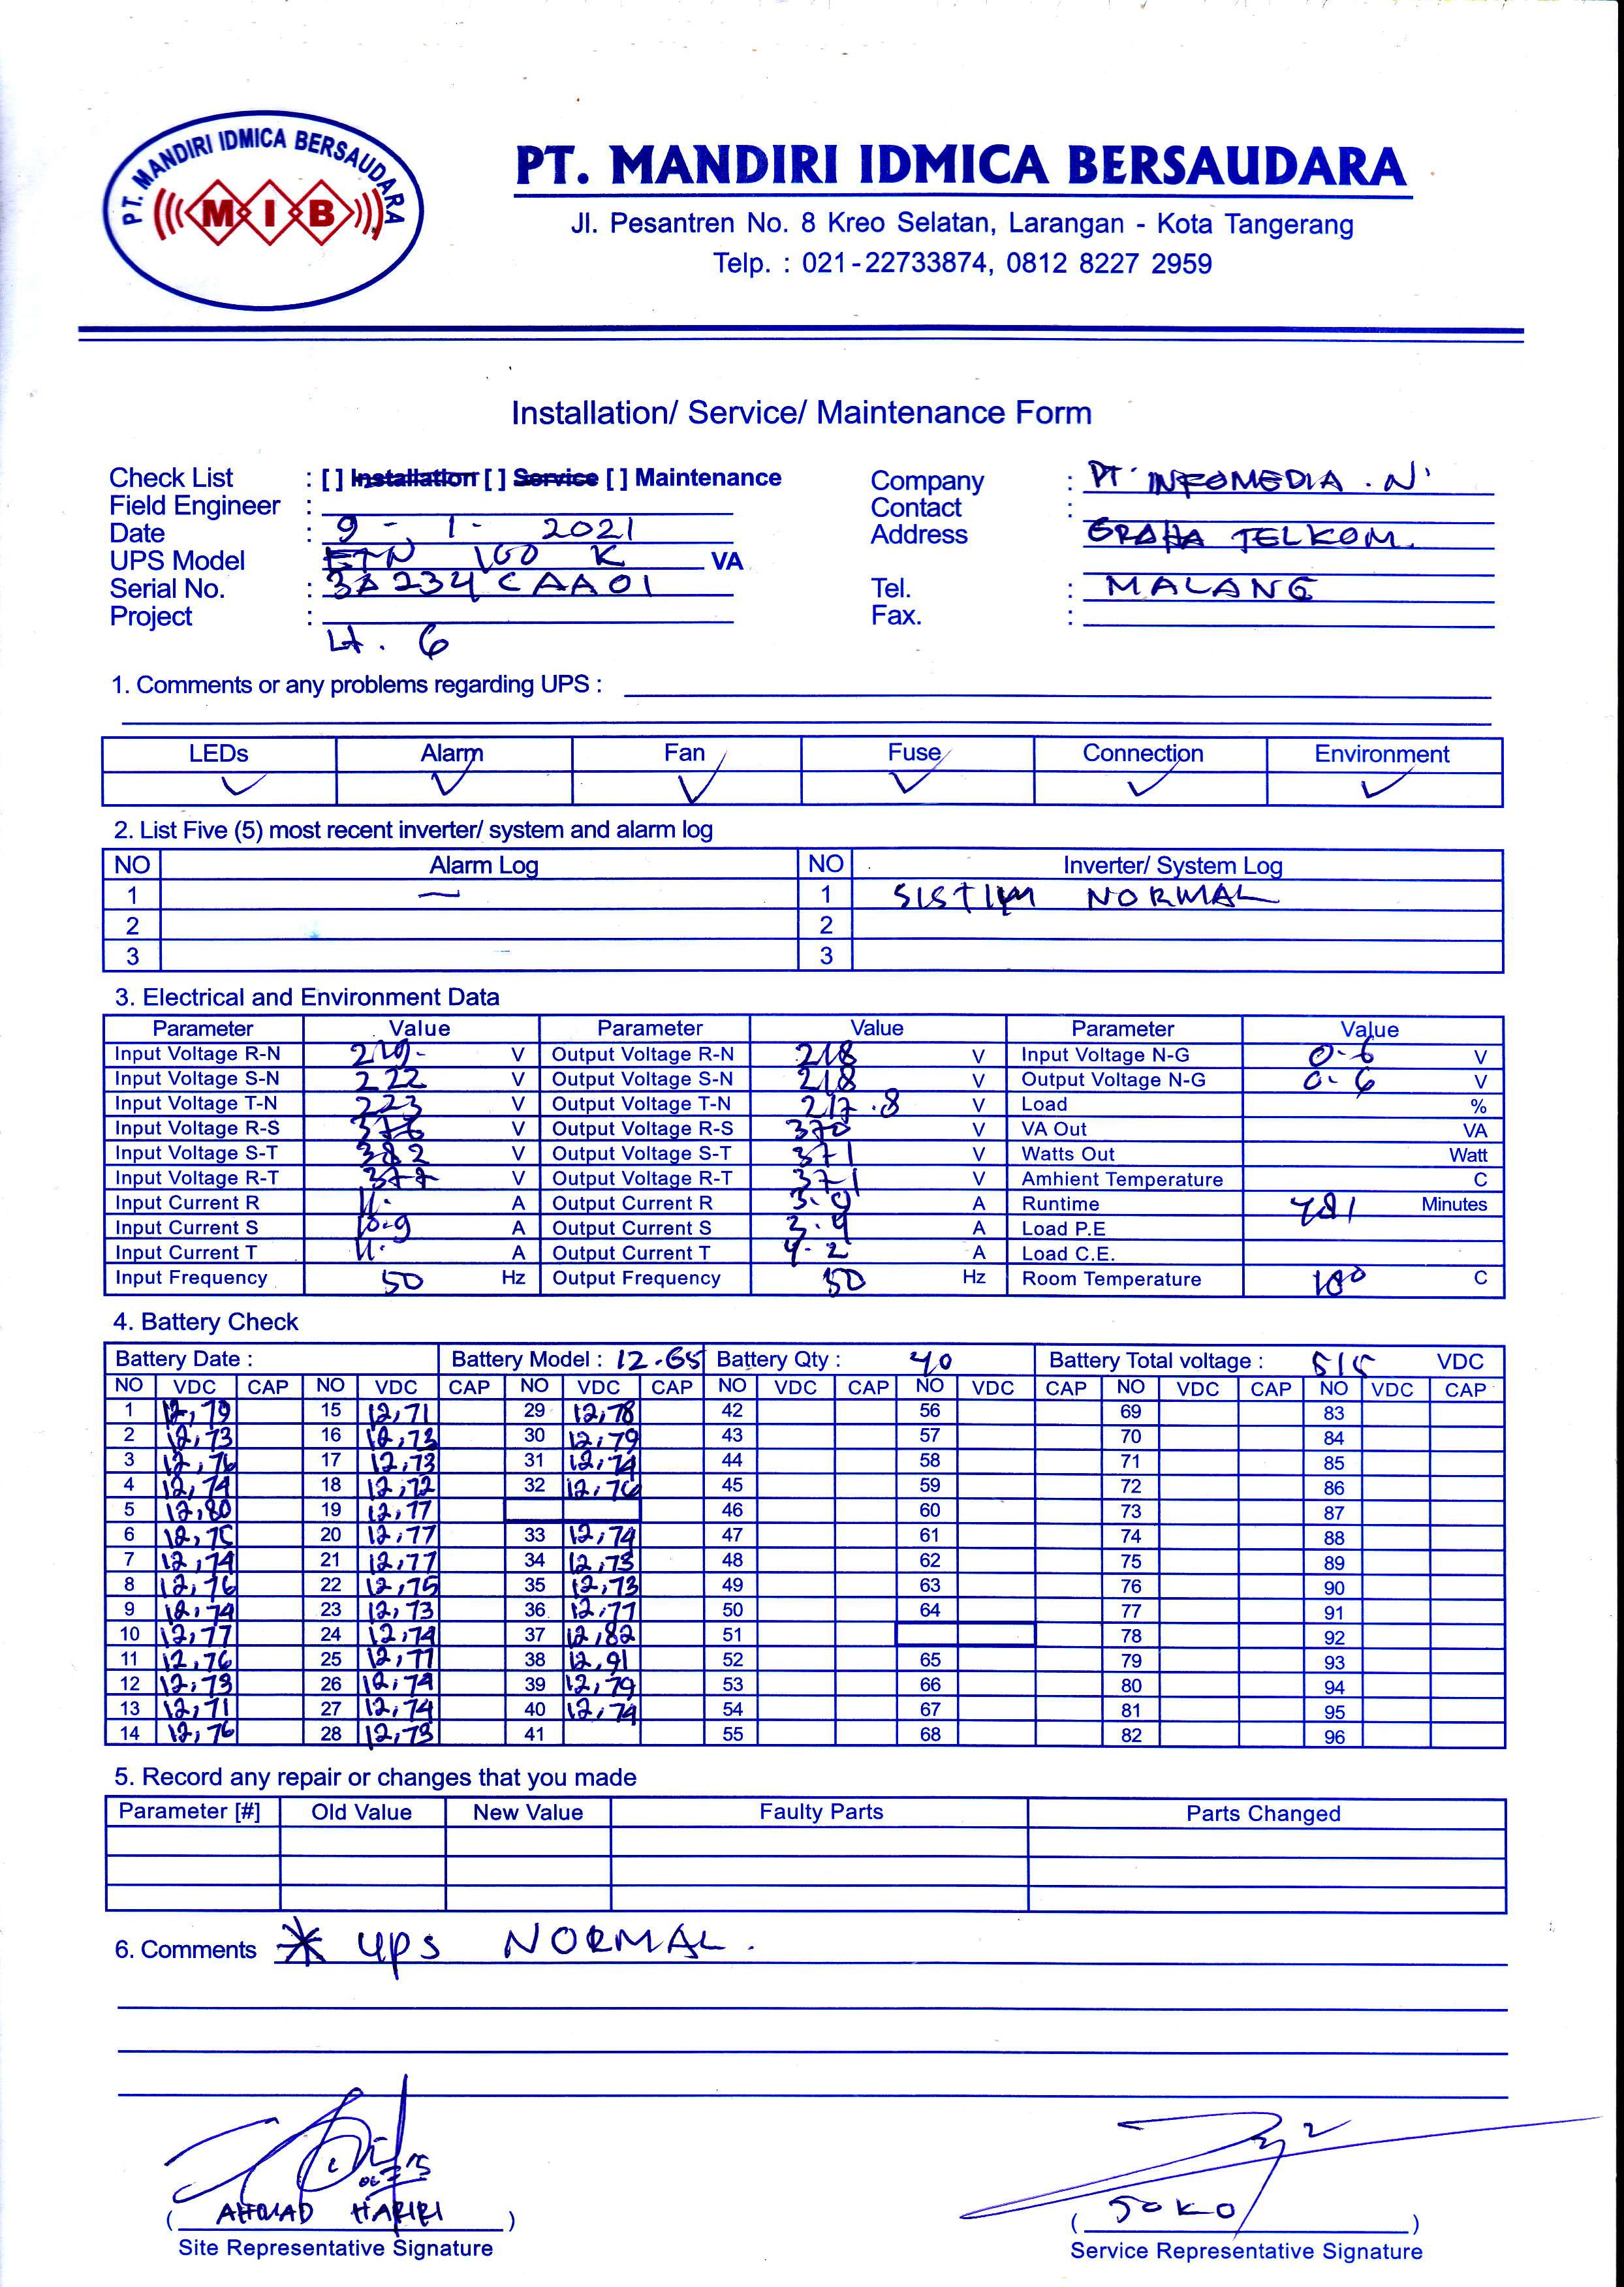 PT. MANDIRI IDMICA BERSAUDARA
MIB
PT. MANDIRI IDMICA BERSAUDARA
Jl. Pesantren No. 8 Kreo Selatan, Larangan - Kota Tangerang
Telp. : 021-22733874, 0812 8227 2959
Installation/ Service/ Maintenance Form
Check List : [ ] Installation [ ] Service [ ] Maintenance
Field Engineer :
Date : 9 - 1 - 2021
UPS Model ETN 160 K VA
Serial No. : 3A234CAA01
Project :
Lt. 6
Company : PT. INFOMEDIA . N.
Contact :
Address GRAHA TELKOM.
Tel. : MALANG
Fax. :
1. Comments or any problems regarding UPS :
LEDs Alarm Fan Fuse Connection Environment
✓ ✓ ✓ ✓ ✓ ✓
2. List Five (5) most recent inverter/ system and alarm log
NO Alarm Log NO Inverter/ System Log
1 — 1 SISTIM NORMAL
2 2
3 3
3. Electrical and Environment Data
Parameter Value Parameter Value Parameter Value
Input Voltage R-N V Output Voltage R-N 218 V Input Voltage N-G 0-6 V
Input Voltage S-N 222 V Output Voltage S-N 218 V Output Voltage N-G 0-6 V
Input Voltage T-N 223 V Output Voltage T-N 217.8 V Load %
Input Voltage R-S 376 V Output Voltage R-S 370 V VA Out VA
Input Voltage S-T 382 V Output Voltage S-T 371 V Watts Out Watt
Input Voltage R-T 377 V Output Voltage R-T 371 V Amhient Temperature C
Input Current R 11. A Output Current R A Runtime Minutes
Input Current S 10-9 A Output Current S A Load P.E
Input Current T 11. A Output Current T 4-2 A Load C.E.
Input Frequency 50 Hz Output Frequency 50 Hz Room Temperature C
4. Battery Check
Battery Date : Battery Model : 12-65 Battery Qty : 40 Battery Total voltage : 515 VDC
NO VDC CAP NO VDC CAP NO VDC CAP NO VDC CAP NO VDC CAP NO VDC CAP NO VDC CAP
1 12,79 15 12,71 29 12,78 42 56 69 83
2 12,73 16 12,73 30 12,79 43 57 70 84
3 12,76 17 12,73 31 12,74 44 58 71 85
4 12,74 18 12,72 32 12,76 45 59 72 86
5 12,80 19 12,77 46 60 73 87
6 12,75 20 12,77 33 12,74 47 61 74 88
7 12,74 21 12,77 34 12,73 48 62 75 89
8 12,76 22 12,75 35 12,73 49 63 76 90
9 12,74 23 12,73 36 12,77 50 64 77 91
10 12,77 24 12,74 37 12,82 51 78 92
11 12,76 25 12,77 38 12,91 52 65 79 93
12 12,73 26 12,74 39 12,79 53 66 80 94
13 12,71 27 12,74 40 12,74 54 67 81 95
14 12,76 28 12,73 41 55 68 82 96
5. Record any repair or changes that you made
Parameter [#] Old Value New Value Faulty Parts Parts Changed
6. Comments * UPS NORMAL.
( AHMAD HARIRI )
Site Representative Signature
( JOKO )
Service Representative Signature